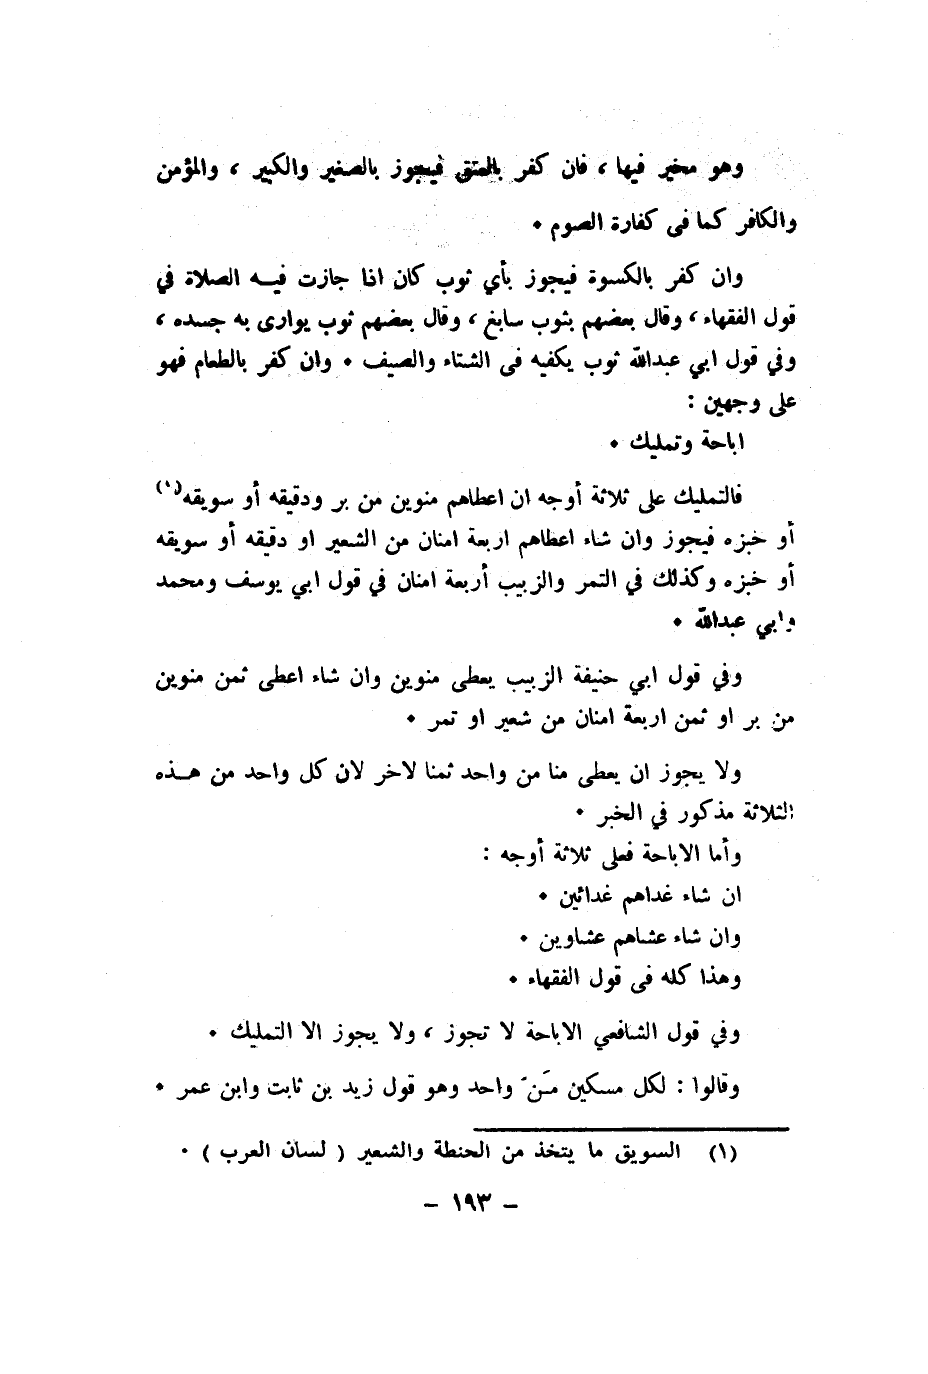 وهو مخير فيها ، فان كفر بالعتق فيجوز بالصغير والكبير ، والمؤمن
والكافر كما فى كفارة الصوم ٠
وان كفر بالكسوة فيجوز بأي ثوب كان اذا جازت فيــه الصلاة في
قول الفقهاء ، وقال بعضهم بثوب سابغ ، وقال بعضهم ثوب يوارى به جسده ،
وفي قول ابي عبدالله ثوب يكفيه فى الشتاء والصيف ٠ وان كفر بالطعام فهو
على وجهين :
اباحة وتمليك ٠
فالتمليك على ثلاثة أوجه ان اعطاهم منوين من بر ودقيقه أو سويقه(١)
أو خبزه فيجوز وان شاء اعطاهم اربعة امنان من الشعير او دقيقه أو سويقه
أو خبزه وكذلك في التمر والزبيب أربعة امنان في قول ابي يوسف ومحمد
وابي عبدالله ٠
وفي قول ابي حنيفة الزبيب يعطى منوين وان شاء اعطى ثمن منوين
من بر او ثمن اربعة امنان من شعير او تمر ٠
ولا يجوز ان يعطى منا من واحد ثمنا لاخر لان كل واحد من هــذه
الثلاثة مذكور في الخبر ٠
وأما الاباحة فعلى ثلاثة أوجه :
ان شاء غداهم غدائين ٠
وان شاء عشاهم عشاوين ٠
وهذا كله فى قول الفقهاء ٠
وفي قول الشافعي الاباحة لا تجوز ، ولا يجوز الا التمليك ٠
وقالوا : لكل مسكين مَنّ واحد وهو قول زيد بن ثابت وابن عمر ٠
(١) السويق ما يتخذ من الحنطة والشعير ( لسان العرب ) ٠
- ١٩٣ -